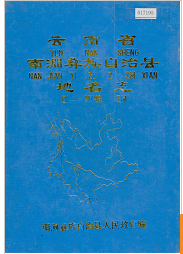 云南省
YUN NAN SHENG
南涧彝族自治县
NAN JIAN YI ZU ZI ZHI XIAN
地名志
南涧彝族自治县人民政府编